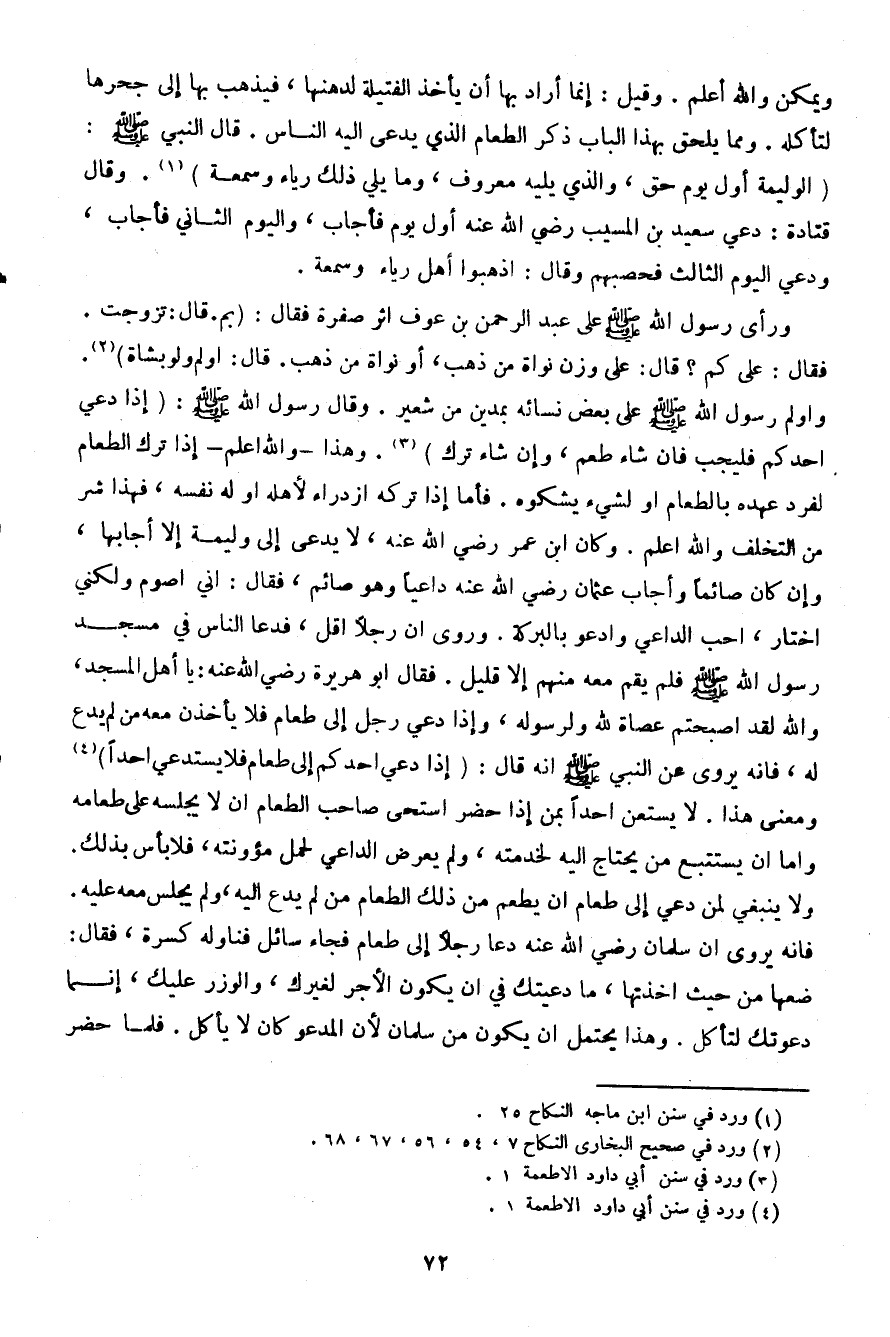 ويمكن والله أعلم . وقيل : إنما أراد بها أن يأخذ الفتيلة لدهنها ، فيذهب بها إلى جحرها
لتأكله . ومما يلحق بهذا الباب ذكر الطعام الذي يدعى اليه النــاس . قال النبي ﷺ :
( الوليمة أول يوم حق ، والذي يليه معروف ، وما يلي ذلك رياء وسمعـة ) (١) . وقال
قتادة : دعي سعيد بن المسيب رضي الله عنه أول يوم فأجاب ، واليوم الثــاني فأجاب ،
ودعي اليوم الثالث فحصبهم وقال : اذهبوا أهل رياء وسمعة .
ورأى رسول الله ﷺ على عبد الرحمن بن عوف اثر صفرة فقال : (بم.قال:تزوجت .
فقال : على كم ؟ قال: على وزن نواة من ذهب، أو نواة من ذهب. قال: اولم ولو بشاة)(٢).
واولم رسول الله ﷺ على بعض نسائه بمدين من شعير . وقال رسول الله ﷺ : ( إذا دعي
احدكم فليجب فان شاء طعم ، وإن شاء ترك ) (٣) . وهذا –والله اعلم– إذا ترك الطعام
لفرد عهده بالطعام او لشيء يشكوه . فأما إذا تركه ازدراء لأهله او له نفسه ، فهذا شر
من التخلف والله اعلم . وكان ابن عمر رضي الله عنه ، لا يدعى إلى وليمـة إلا أجابها ،
وإن كان صائماً وأجاب عثمان رضي الله عنه داعياً وهو صائم ، فقال : اني اصوم ولكني
اختار ، احب الداعي وادعو بالبركة . وروى ان رجلاً اقل ، فدعا الناس في مسجــد
رسول الله ﷺ فلم يقم معه منهم إلا قليل . فقال ابو هريرة رضي الله عنه:يا أهل المسجد،
والله لقد اصبحتم عصاة لله ولرسوله ، وإذا دعي رجل إلى طعام فلا يأخذن معه من لم يدع
له ، فانه يروى عن النبي ﷺ انه قال : ( إذا دعي احدكم إلى طعام فلا يستدعي احداً)(٤)
ومعنى هذا . لا يستعن احداً بمن إذا حضر استحى صاحب الطعام ان لا يجلسه على طعامه
واما ان يستتبع من يحتاج اليه لخدمته ، ولم يعرض الداعي لحمل مؤونته، فلا بأس بذلك.
ولا ينبغي لمن دعي إلى طعام ان يطعم من ذلك الطعام من لم يدع اليه،ولم يجلس معه عليه.
فانه يروى ان سلمان رضي الله عنه دعا رجلاً إلى طعام فجاء سائل فناوله كسرة ، فقال:
ضعها من حيث اخذتها ، ما دعيتك في ان يكون الأجر لغيرك ، والوزر عليك ، إنــما
دعوتك لتأكل . وهذا يحتمل ان يكون من سلمان لأن المدعو كان لا يأكل . فلمـا حضر
(١) ورد في سنن ابن ماجه النكاح ٢٥ .
(٢) ورد في صحيح البخارى النكاح ٧ ، ٥٤ ، ٥٦ ، ٦٧ ، ٦٨ .
(٣) ورد في سنن أبي داود الاطعمة ١ .
(٤) ورد في سنن أبي داود الاطعمة ١ .
٧٢